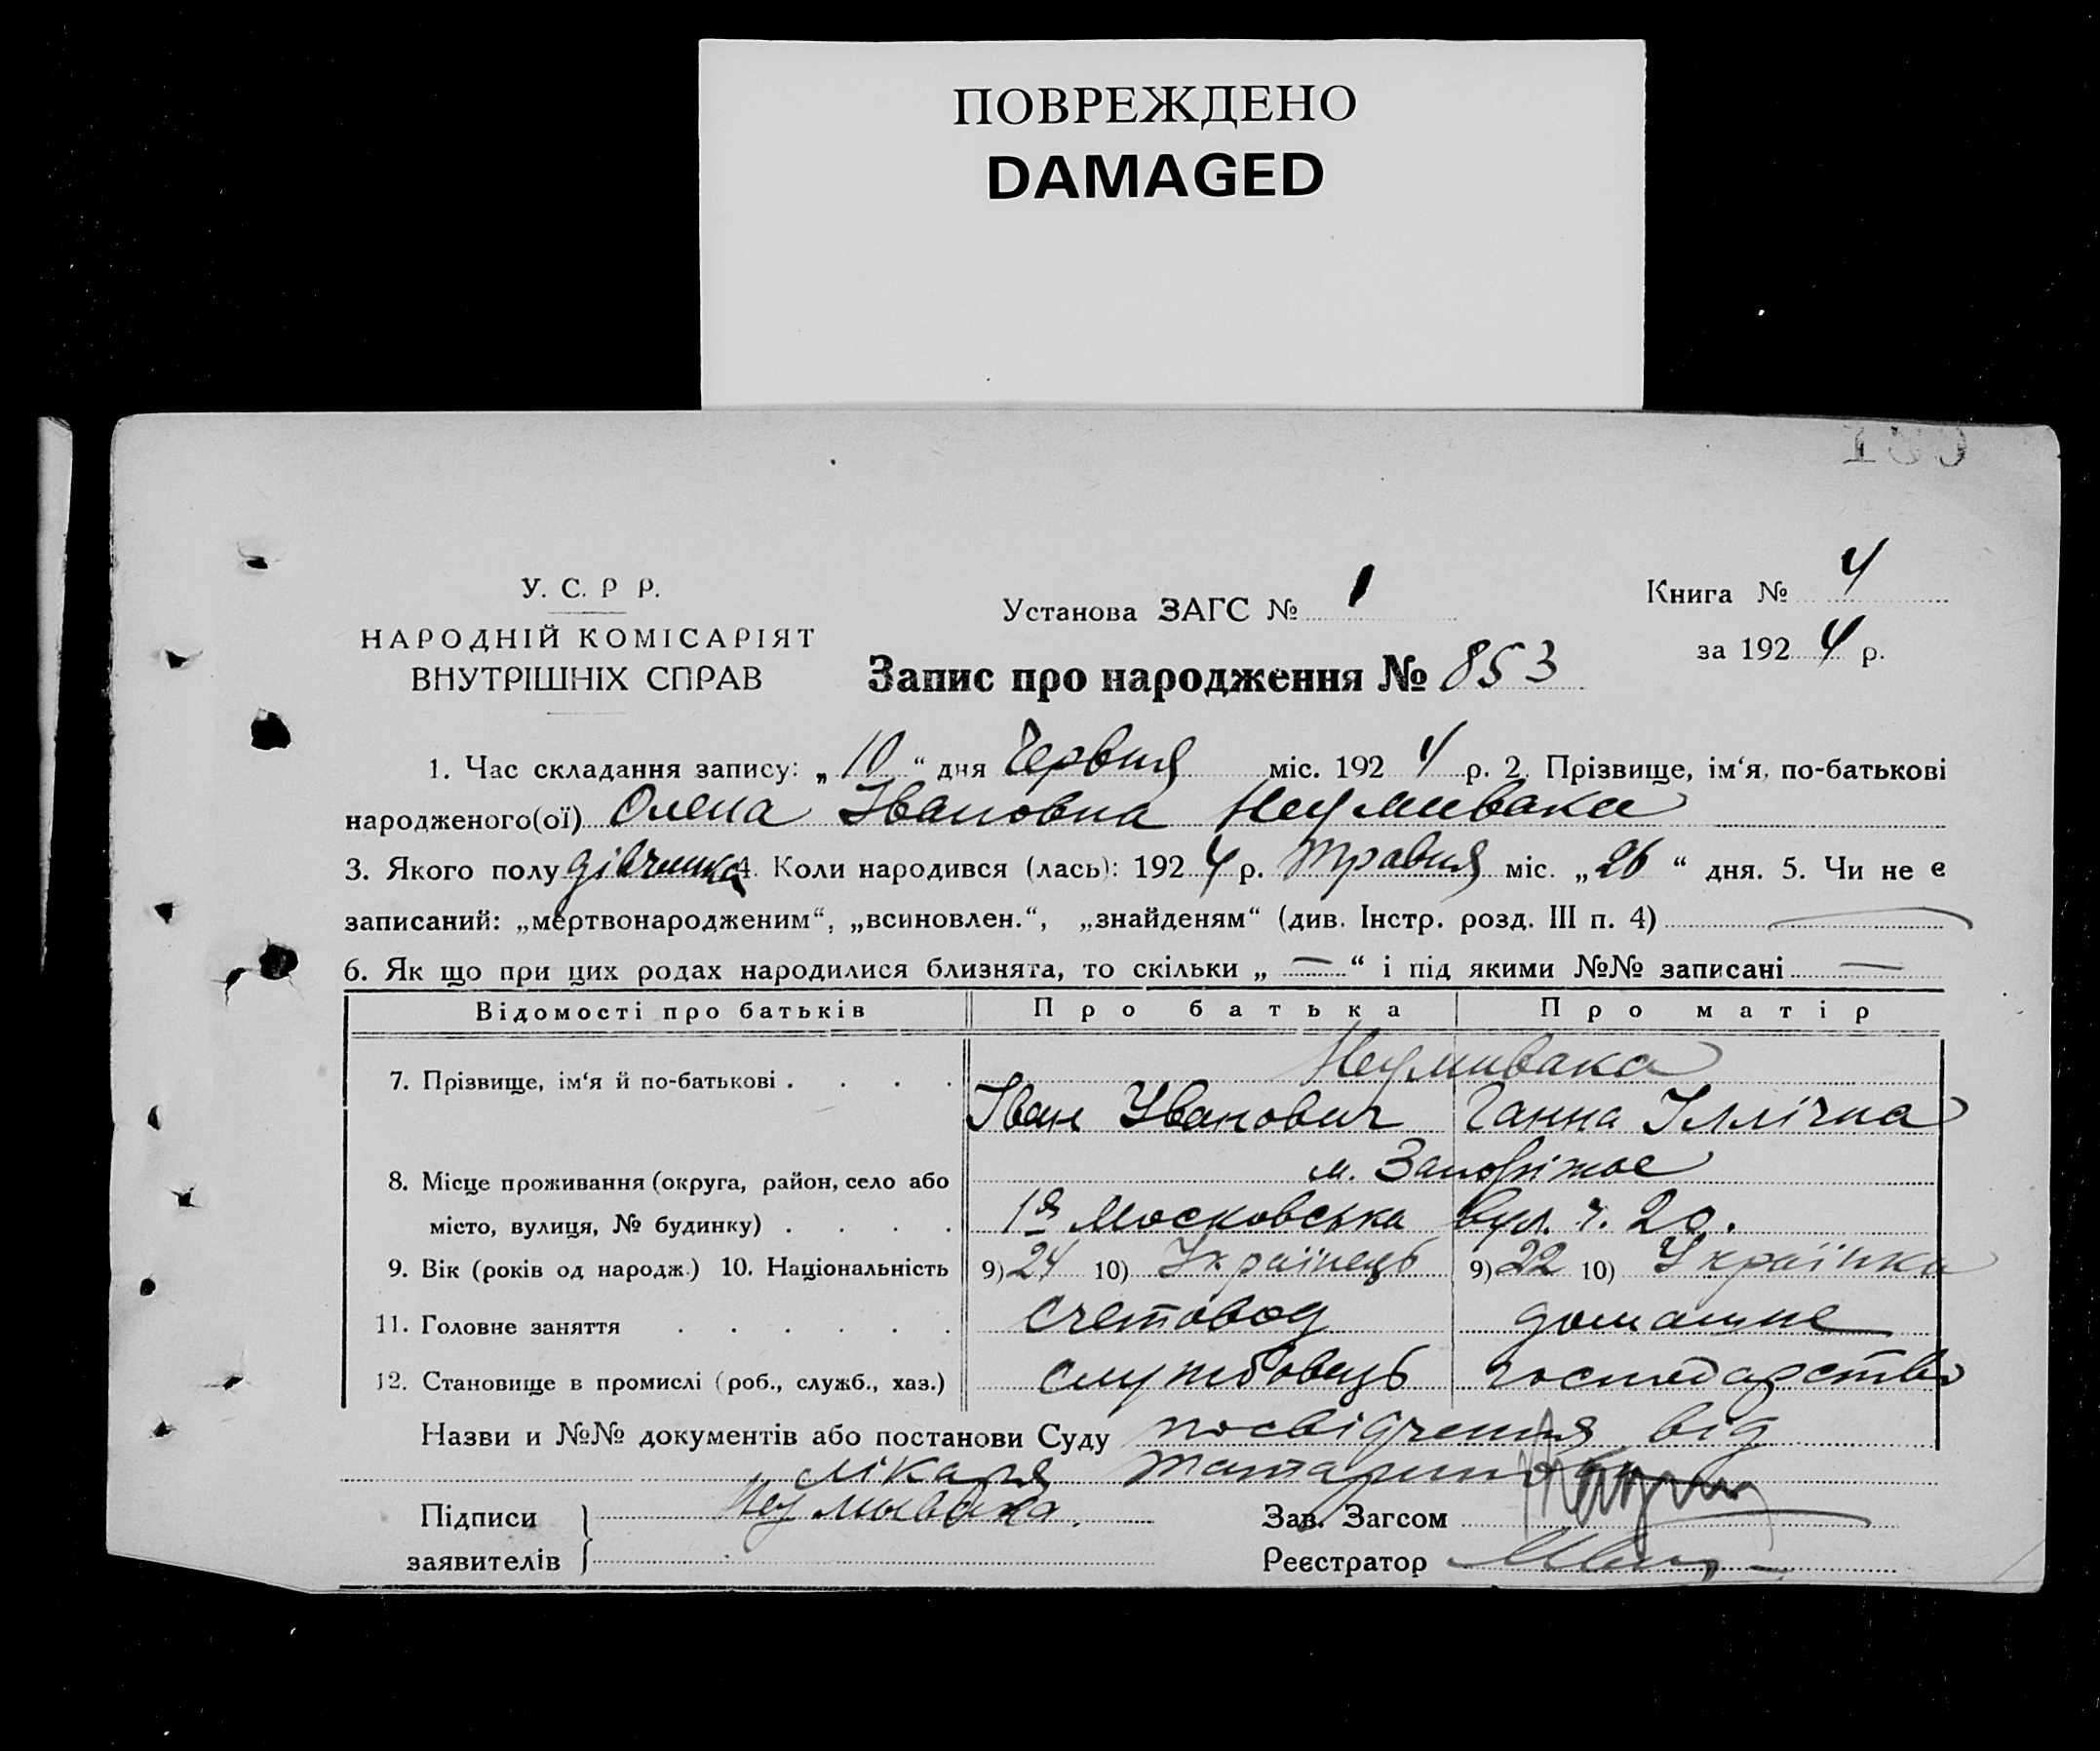 ПОВРЕЖДЕНО
DAMAGED
У. С. Р Р.
НАРОДНІЙ КОМІСАРІЯТ
ВНУТРІШНІХ СПРАВ
Установа ЗАГС № 1
Запис про народження № 853
Книга № 4
за 1924 р.
1. Час складання запису: „10“ дня Червня міс. 1924 р. 2. Прізвище, ім‘я, по-батькові
народженого(ої) Олена Івановна Неумивака
3. Якого полу дівчинка 4. Коли народився (лась): 1924 р. травня міс. „26“ дня. 5. Чи не є
записаний: „мертвонародженим“, „всиновлен.“, „знайденям“ (див. Інстр. розд. III п. 4) —
6. Як що при цих родах народилися близнята, то скільки „—“ і під якими №№ записані —
Відомості про батьків Про батька Про матір
7. Прізвище, ім‘я й по-батькові . . . . Неумивака
Іван Іванович Ганна Іллічна
8. Місце проживання (округа, район, село або м. Запоріжжє
місто, вулиця, № будинку) . . . . 1я Московська вул. ч. 20.
9. Вік (років од народж.) 10. Національність 9) 24 10) Українець 9) 22 10) Українка
11. Головне заняття . . . . . . счетовод домашнє
12. Становище в промислі (роб., служб., хаз.) службовець господарство
Назви и №№ документів або постанови Суду посвідчення від
лікаря
Підписи Неумывака. Зав. Загсом
заявителів Реєстратор